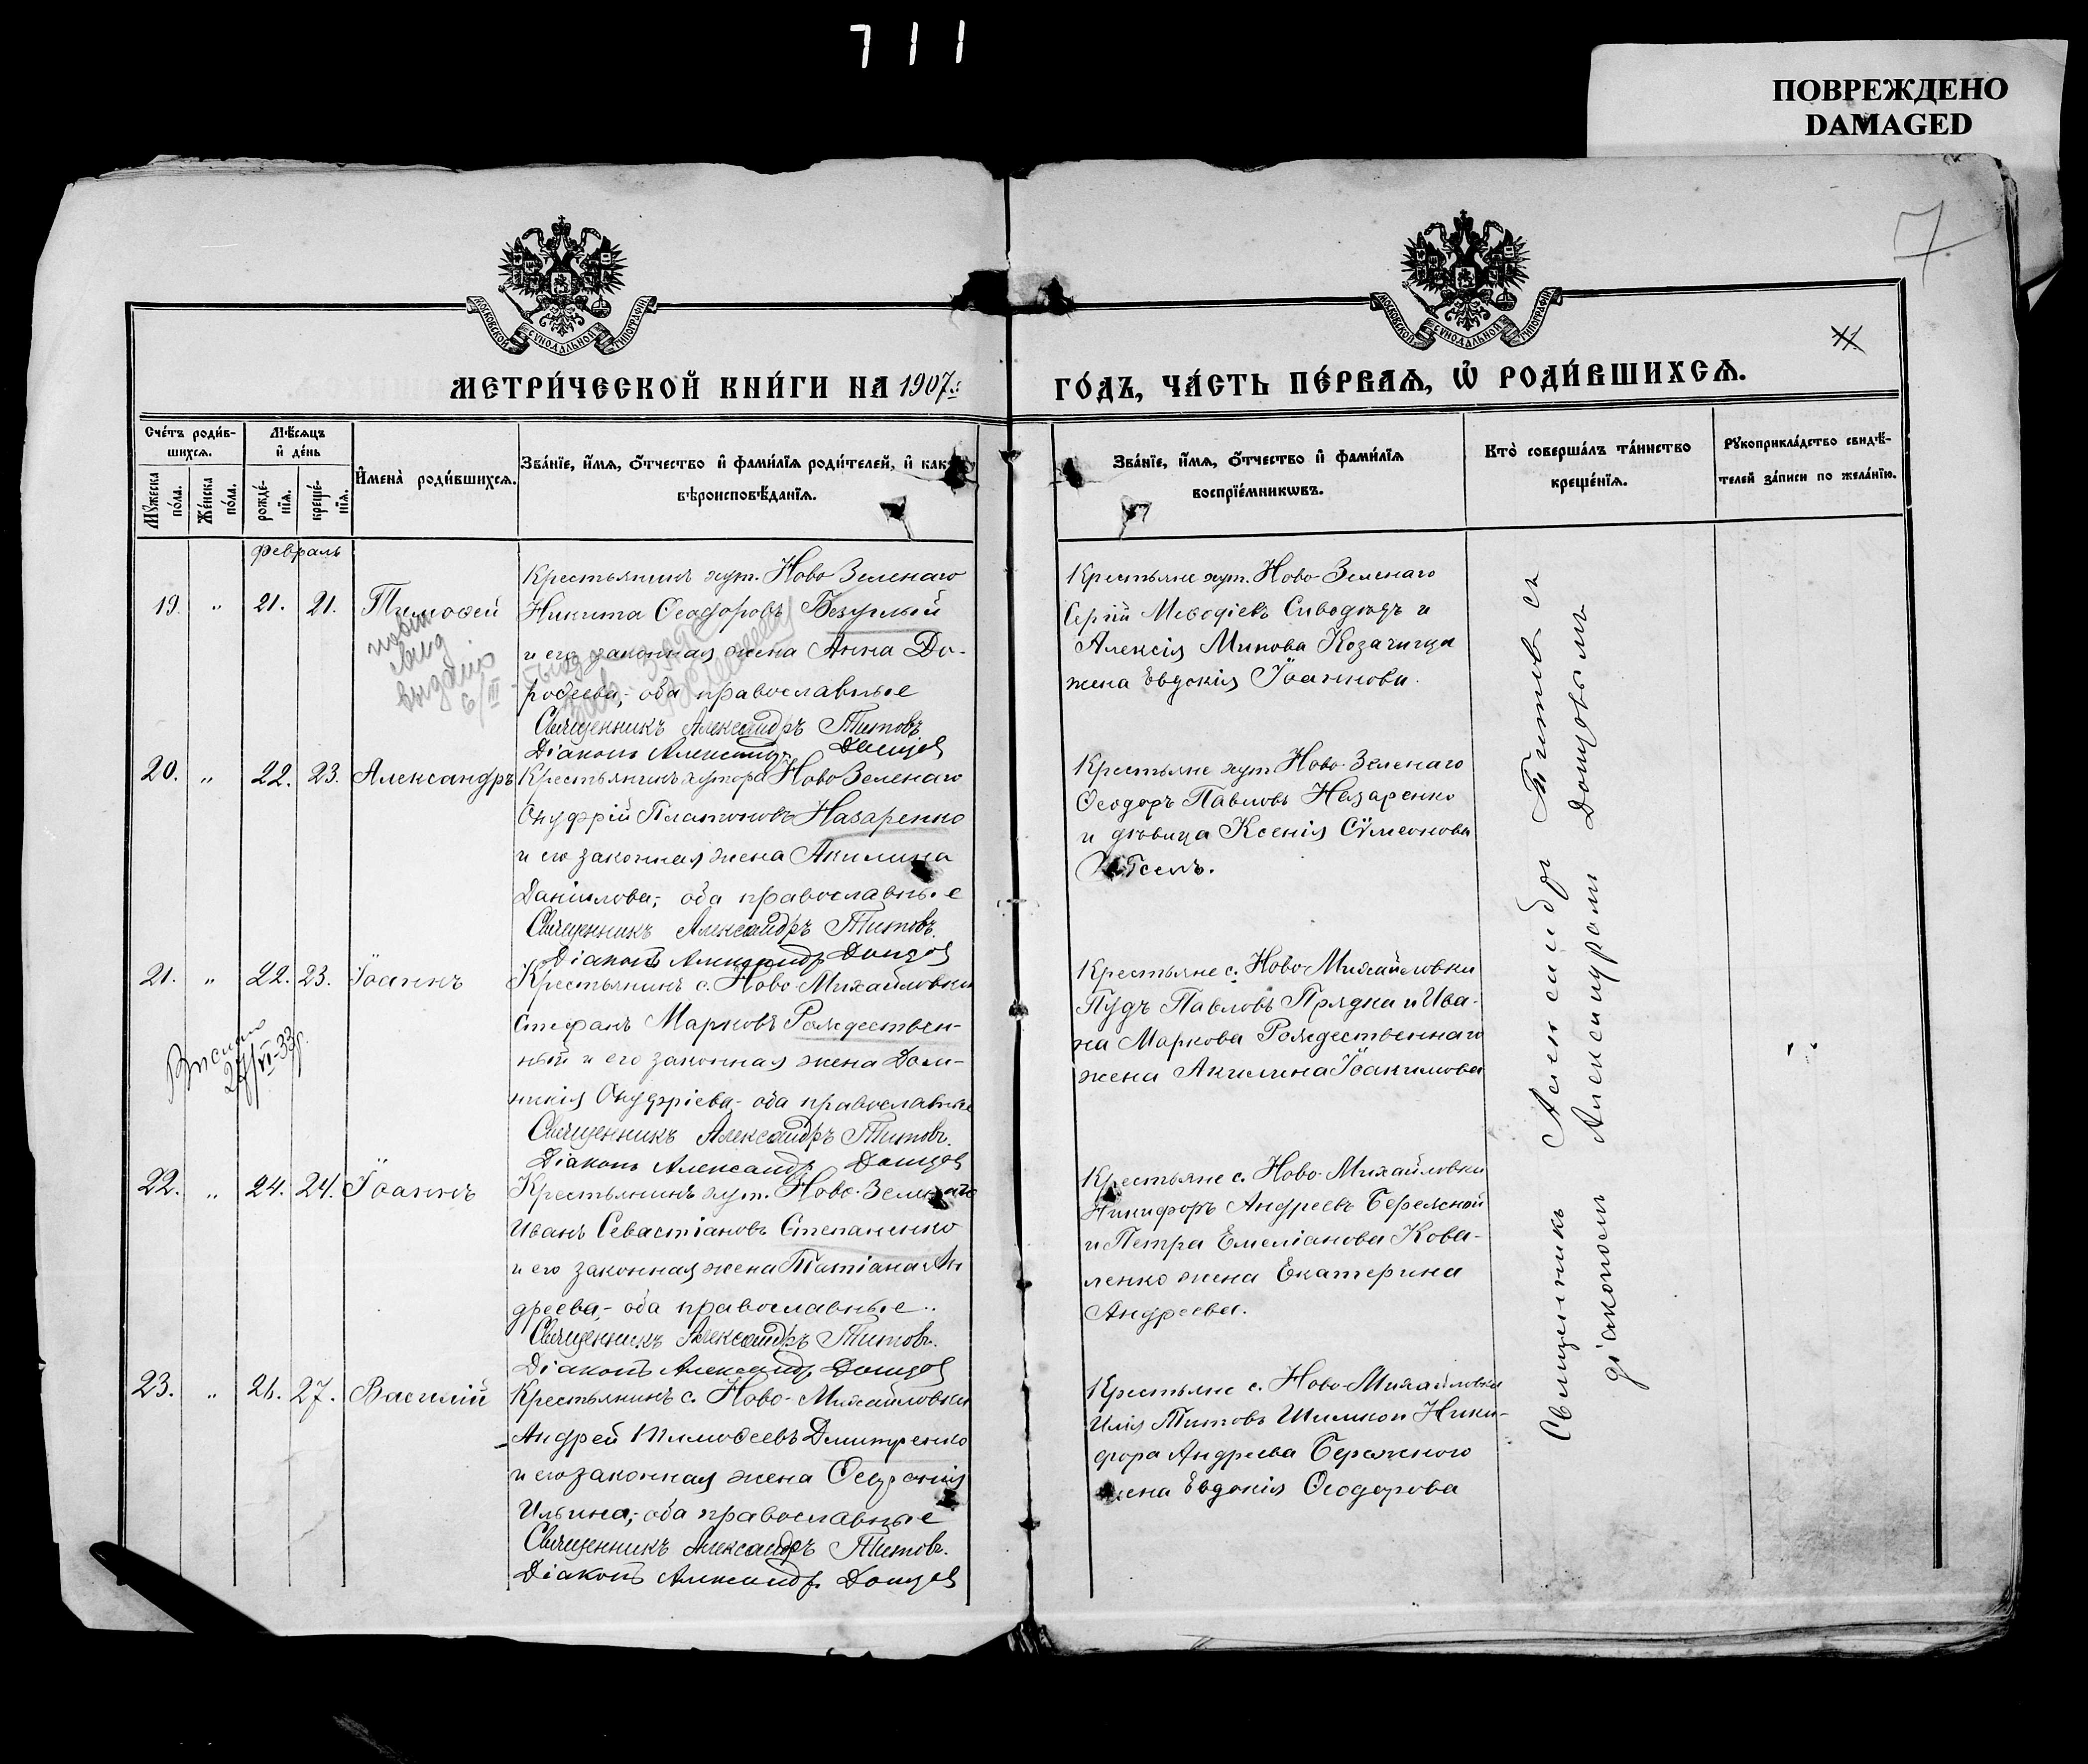 711
ПОВРЕЖДЕНО
DAMAGED
7
МОСКОВСКОЙ СѴНОДАЛЬНОЙ ТИПОГРАФІИ
МОСКОВСКОЙ СѴНОДАЛЬНОЙ ТИПОГРАФІИ
МЕТРИ́ЧЕСКОЙ КНИ́ГИ НА 1907 г.
ГО́ДЪ, ЧА́СТЬ ПЕ́РВАѦ, Ѡ҆ РОДИ́ВШИХСѦ.
Сче́тъ роди́в-
шихсѧ.
Мѣ́сѧцъ
и҆ де́нь
Мꙋ́жеска по́ла.
Же́нска по́ла.
рожде́-нїѧ.
креще́-нїѧ.
И҆мена̀ роди́вшихсѧ.
Зва́нїе, и҆́мѧ, ѻ҆́тчество и҆ фами́лїѧ роди́телей, и҆ как
вѣроисповѣ́данїѧ.
Зва́нїе, и҆́мѧ, ѻ҆́тчество и҆ фами́лїѧ
воспрїе́мникѡвъ.
Кто̀ соверша́лъ та́инство
креще́нїѧ.
Рꙋкоприкла́дство свидѣ́-
телей за́писи по жела́нїю.
Февраль
19. " 21. 21. Тимоѳей
Крестьянинъ хут. Ново Зеленаго
Никита Ѳеодоровъ Безуглый
и его законная жена Анна До-
роѳеева; оба православные
Священникъ Александръ Титовъ.
Діаконъ Александръ Донцов
выдано
6/III
Крестьяне хут. Ново-Зеленаго
Сергій Меѳодіевъ Сиводѣдъ и
Алексія Минова Козачинца
жена Евдокія Іоаннова.
20. " 22. 23. Александръ
Крестьянинъ хутора Ново Зеленаго
Онуфрій Платоновъ Назаренко
и его законная жена Акилина
Даніилова; оба православные
Священникъ Александръ Титовъ.
Діаконъ Александр Донцов
Крестьяне хут. Ново-Зеленаго
Ѳеодоръ Павловъ Назаренко
и дѣвица Ксенія Сѵмеонова
21. " 22. 23. Іоаннъ
27/VI-33 г.
Крестьянинъ с. Ново-Михайловки
Стефанъ Марковъ Рождествен-
ный и его законная жена Дом-
никія Онуфріева- оба православные
Священникъ Александръ Титовъ.
Діаконъ Александр Донцов
Крестьяне с. Ново-Михайловки
Пудъ Павловъ Прядка и Ива-
на Маркова Рождественнаго
жена Акилина Іоакимова
22. " 24. 24. Іоаннъ
Крестьянинъ хут. Ново-Зеленаго
Иванъ Севастіановъ Степаненко
и его законная жена Татіана Ан
дреева,- оба православные.
Священникъ Александръ Титовъ.
Діаконъ Александр Донцов
Крестьяне с. Ново-Михайловки
Никифоръ Андреевъ Бережной
и Петра Емеліанова Кова-
ленко жена Екатерина
Андреева.
23. " 26. 27. Василій
Крестьянинъ с. Ново-Михайловки
Андрей Тимоѳеевъ Дмитренко
и его законная жена
Ильина,- оба православные
Священникъ Александръ Титовъ.
Діаконъ Александр. Донцов
Крестьяне с. Ново-Михайловки
Илія Титовъ и Ники-
фора Андреева Бережного
жена Евдокія Ѳеодорова
Священникъ Александръ Титовъ съ
діакономъ Александромъ Донцовымъ